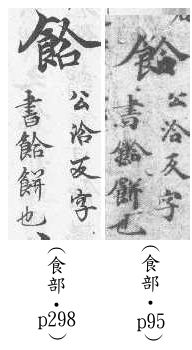 餄
公洽反字
書餄餅也
(食部・p95)
餄
公洽反字
書餄餅也
(食部・p298)